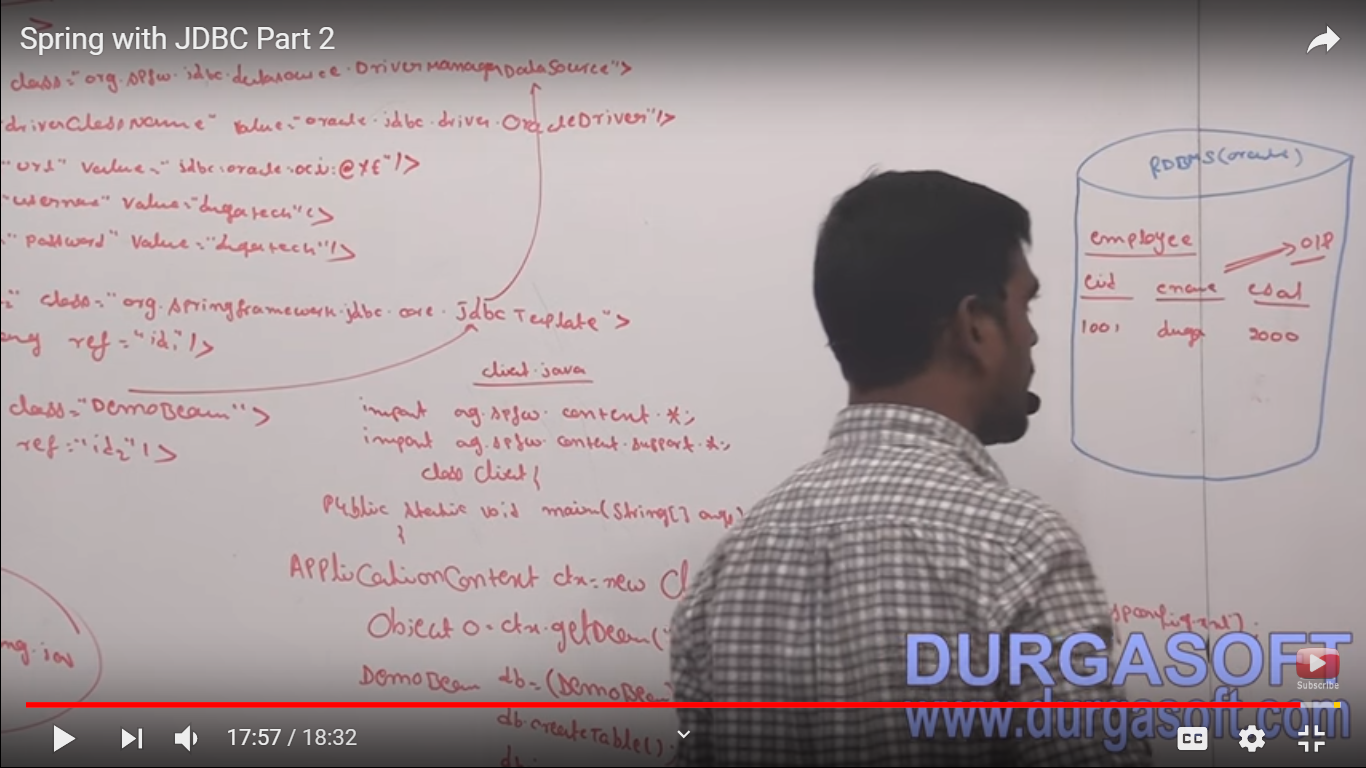 Spring with JDBC Part 2
class="org.spfw.jdbc.datasource.DriverManagerDataSource">
driverClassName" value="oracle.jdbc.driver.OracleDriver"/>
"url" value="jdbc:oracle:oci:@XE"/>
value="durgatech"
"password" value="durgatech"/>
class="org.springframework.jdbc.core.JdbcTemplate">
ref="id1"/>
class="DemoBean">
ref="id2"/>
client.java
import org.spfw.context.*;
import org.spfw.context.support.*;
class Client{
public static void main(String[] args)
{
ApplicationContext ctx=new Cl
Object o=ctx.getBean("
DemoBean db=(DemoBean
db.createTable();
RDBMS(oracle)
employee
eid ename esal
1001 durga 2000
DURGASOFT
www.durgasoft.com
Subscribe
17:57 / 18:32
CC